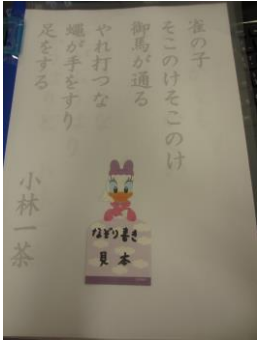 雀の子
そこのけそこのけ
御馬が通る
やれ打つな
蠅が手をすり
足をする
小林一茶
なぞり書き
見本